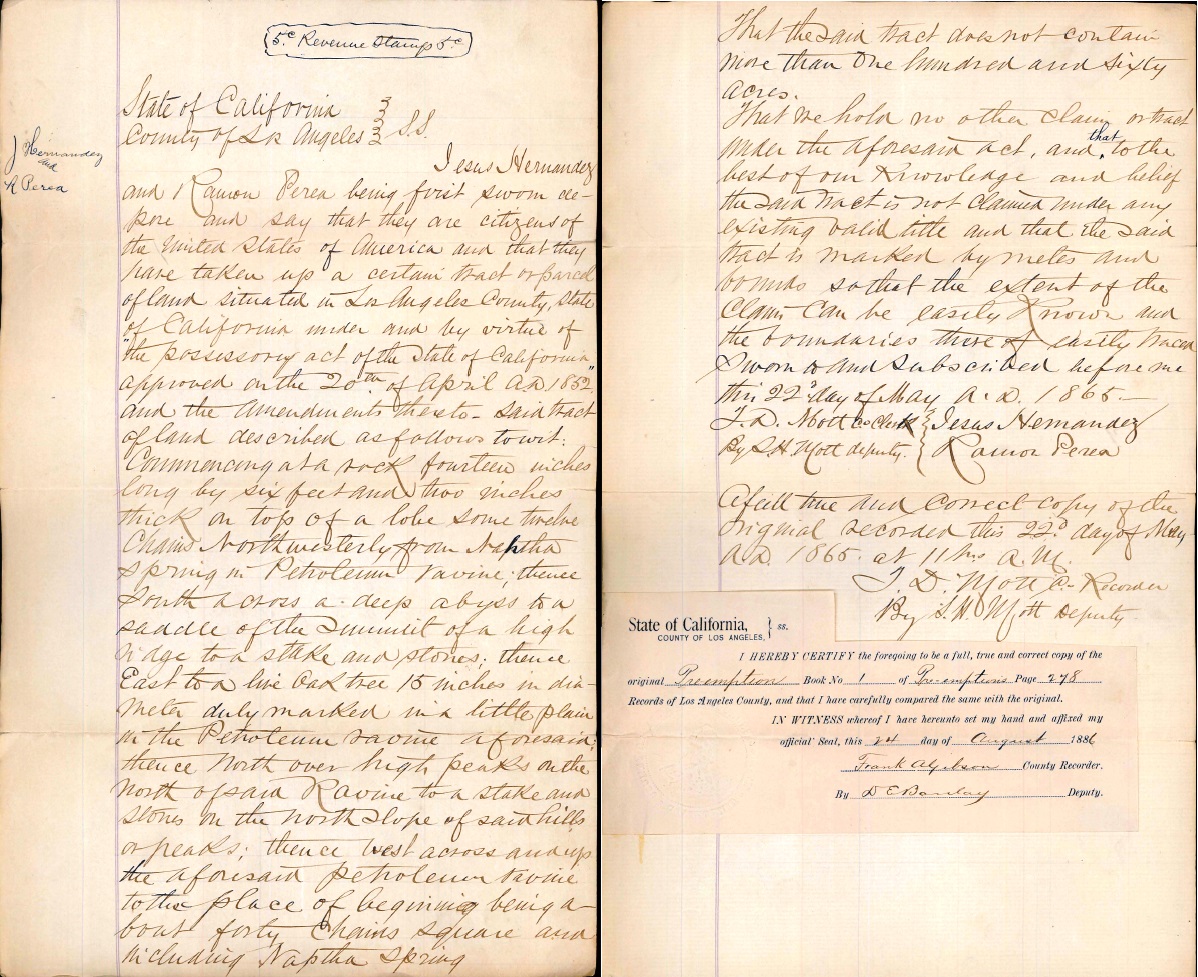 5.c Revenue Stamps 5c
State of California
County of Los Angeles } S.S.
J Hernandez
and
R Perea
Jesus Hernandez
and Ramon Perea being first sworn de-
pose and say that they are citizens of
the United States of America and that they
have taken up a certain tract or parcel
of land situated in Los Angeles County, State
of California under and by virtue of
"the possessory act of the State of California
approved on the 20th of April A.D. 1852"
and the amendments thereto - said tract
of land described as follows to wit:
Commencing at a rock fourteen inches
long by six feet and two inches
thick on top of a lobe some twelve
Chains Northwesterly from Naphtha
Spring in Petroleum ravine; thence
South across a deep abyss to a
saddle of the Summit of a high
ridge to a stake and stones; thence
East to a live Oak tree 15 inches in dia-
meter duly marked in a little plain
in the Petroleum ravine aforesaid;
thence North over high peaks on the
North of said Ravine to a stake and
stones on the north slope of said hills
or peaks; thence west across and up
the aforesaid petroleum ravine
to the place of beginning being a-
bout forty Chains square and
including Naptha Spring
That the said tract does not contain
more than One hundred and sixty
acres.
That we hold no other claim or tract
under the aforesaid act, and that to the
best of our Knowledge and belief
the said tract is not claimed under any
existing valid title and that the said
tract is marked by metes and
bounds so that the extent of the
Claim Can be easily Known and
the boundaries there of easily traced
Sworn to and subscribed before me
this 22d day of May A.D. 1865.—
T.D. Mott Co Clerk } Jesus Hernandez
By S.H. Mott deputy. { Ramon Perea
A full true and correct copy of the
original recorded this 22d day of May,
A.D. 1865 at 11 hrs A.M.
T. D. Mott Co- Recorder
By S. H. Mott Deputy
State of California, } ss.
COUNTY OF LOS ANGELES,
I HEREBY CERTIFY the foregoing to be a full, true and correct copy of the
original Preemption Book No 1 of Pre-emptions Page 278
Records of Los Angeles County, and that I have carefully compared the same with the original.
IN WITNESS whereof I have hereunto set my hand and affixed my
official Seal, this 24 day of August 1886
Frank A Gibson County Recorder.
By D E Barclay Deputy.